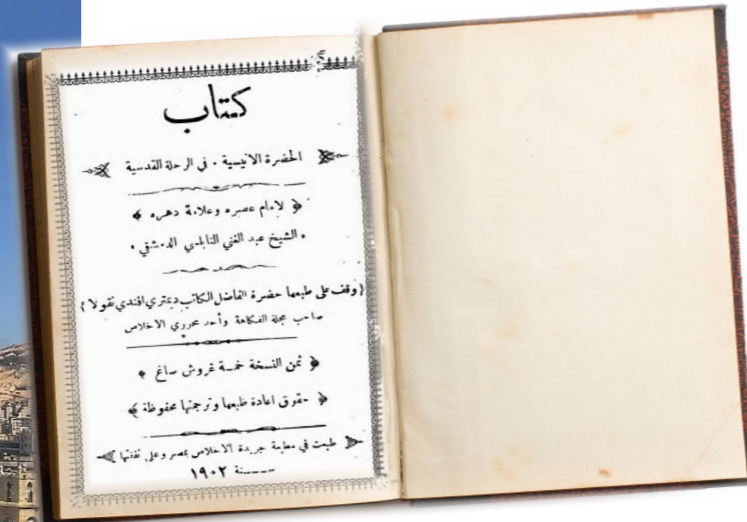 كتاب
الحضرة الانيسية . في الرحلة القدسية
﴿ لامام عصره وعلامة دهره ﴾
• الشيخ عبد الغني النابلسي الدمشقي •
( وقف على طبعها حضرة الفاضل الكاتب ديمتري افندي نقولا )
صاحب مجلة الفكاهة وأحد محرري الاخلاص
﴿ ثمن النسخة خمسة غروش ساغ ﴾
﴿ حقوق اعادة طبعها وترجمتها محفوظة ﴾
طبعت في مطبعة جريدة الاخلاص بمصر وعلى نفقتها
سنة ١٩٠٢